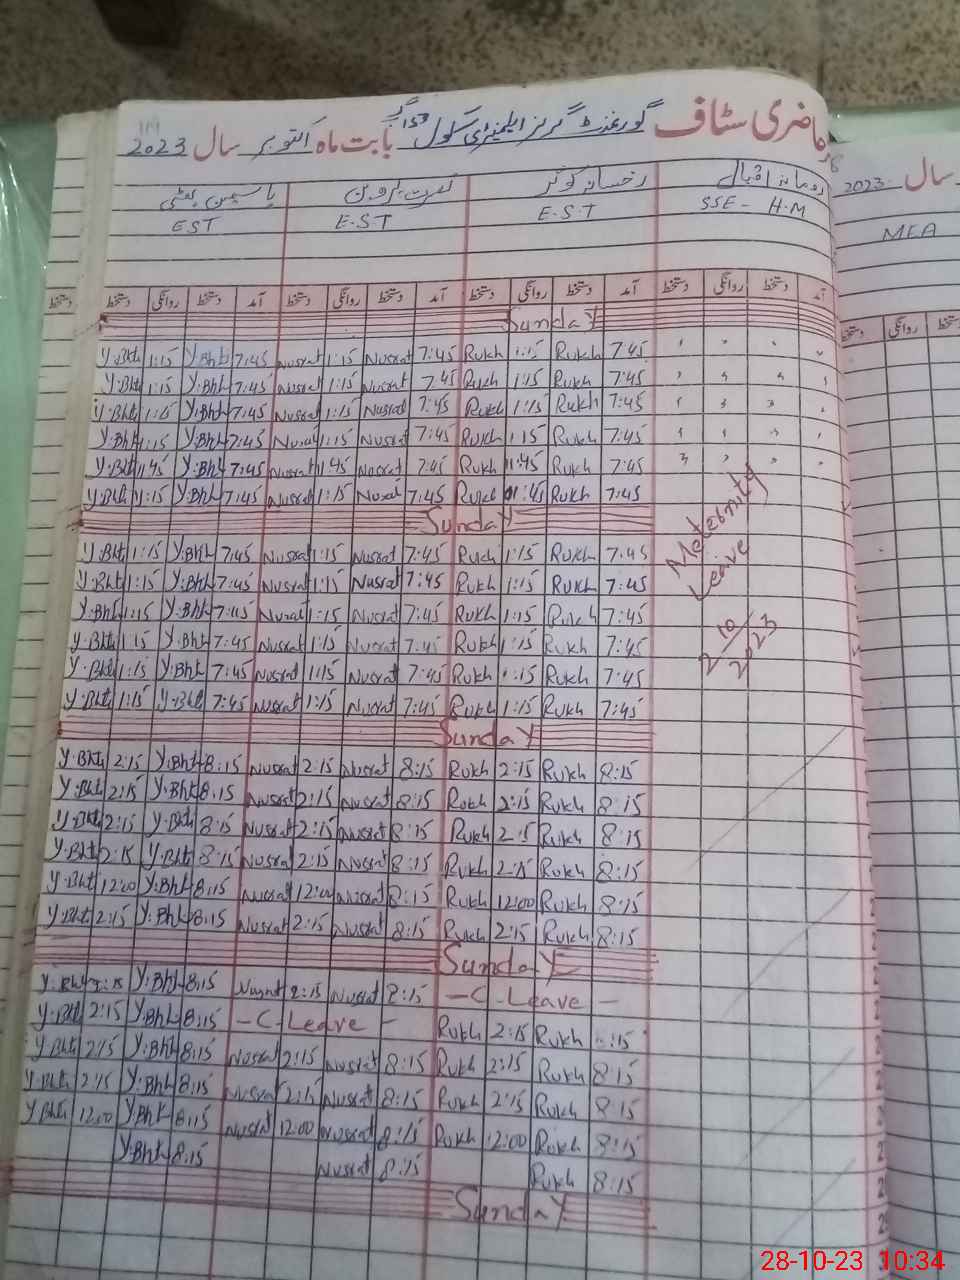 حاضری سٹاف گورنمنٹ گرلز ایلیمنٹری سکول 153 گ ب بابت ماہ اکتوبر سال 2023
سال 2023
رومانہ اقبال رخسانہ کوثر نصرت پروین یاسمین بھٹی
SSE - H.M E.S.T E.S.T EST
MEA
آمد دستخط روانگی دستخط آمد دستخط روانگی دستخط آمد دستخط روانگی دستخط آمد دستخط روانگی دستخط
دستخط روانگی دستخط
Sunday
Y.Bht 1:15 Y.Bht 7:45 Nusrat 1:15 Nusrat 7:45 Rukh 1:15 Rukh 7:45
Y.Bht 1:15 Y.Bht 7:45 Nusrat 1:15 Nusrat 7:45 Rukh 1:15 Rukh 7:45
Y.Bht 1:15 Y.Bht 7:45 Nusrat 1:15 Nusrat 7:45 Rukh 1:15 Rukh 7:45
Y.Bht 1:15 Y.Bht 7:45 Nusrat 1:15 Nusrat 7:45 Rukh 1:15 Rukh 7:45
Y.Bht 11:45 Y.Bht 7:45 Nusrat 11:45 Nusrat 7:45 Rukh 11:45 Rukh 7:45
Y.Bht 1:15 Y.Bht 7:45 Nusrat 1:15 Nusrat 7:45 Rukh Rukh 7:45
Sunday
Meternity
Leave
2/10/2023
Y.Bht 1:15 Y.Bht 7:45 Nusrat 1:15 Nusrat 7:45 Rukh 1:15 Rukh 7:45
Y.Bht 1:15 Y.Bht 7:45 Nusrat 1:15 Nusrat 7:45 Rukh 1:15 Rukh 7:45
Y.Bht 1:15 Y.Bht 7:45 Nusrat 1:15 Nusrat 7:45 Rukh 1:15 Rukh 7:45
Y.Bht 1:15 Y.Bht 7:45 Nusrat 1:15 Nusrat 7:45 Rukh 1:15 Rukh 7:45
Y.Bht 1:15 Y.Bht 7:45 Nusrat 1:15 Nusrat 7:45 Rukh 1:15 Rukh 7:45
Y.Bht 1:15 Y.Bht 7:45 Nusrat 1:15 Nusrat 7:45 Rukh 1:15 Rukh 7:45
Sunday
Y.Bht 2:15 Y.Bht 8:15 Nusrat 2:15 Nusrat 8:15 Rukh 2:15 Rukh 8:15
Y.Bht 2:15 Y.Bht 8:15 Nusrat 2:15 Nusrat 8:15 Rukh 2:15 Rukh 8:15
Y.Bht 2:15 Y.Bht 8:15 Nusrat 2:15 Nusrat 8:15 Rukh 2:15 Rukh 8:15
Y.Bht 2:15 Y.Bht 8:15 Nusrat 2:15 Nusrat 8:15 Rukh 2:15 Rukh 8:15
Y.Bht 12:00 Y.Bht 8:15 Nusrat 12:00 Nusrat 8:15 Rukh 12:00 Rukh 8:15
Y.Bht 2:15 Y.Bht 8:15 Nusrat 2:15 Nusrat 8:15 Rukh 2:15 Rukh 8:15
Sunday
Y.Bht 2:15 Y.Bht 8:15 Nusrat 2:15 Nusrat 8:15 - C - Leave -
Y.Bht 2:15 Y.Bht 8:15 - C - Leave - Rukh 2:15 Rukh 8:15
Y.Bht 2:15 Y.Bht 8:15 Nusrat 2:15 Nusrat 8:15 Rukh 2:15 Rukh 8:15
Y.Bht 2:15 Y.Bht 8:15 Nusrat 2:15 Nusrat 8:15 Rukh 2:15 Rukh 8:15
Y.Bht 12:00 Y.Bht 8:15 Nusrat 12:00 Nusrat 8:15 Rukh 12:00 Rukh 8:15
Y.Bht 8:15 Nusrat 8:15 Rukh 8:15
Sunday
28-10-23 10:34